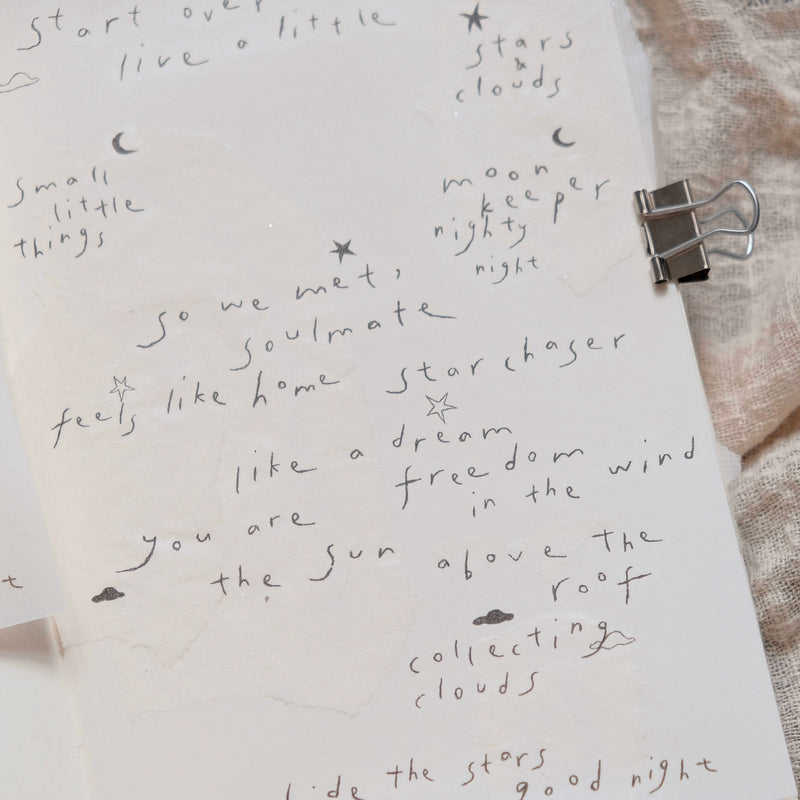 start over
live a little
stars
&
clouds
small
little
things
moon
keeper
nighty
night
so we met,
soulmate
feels like home
star chaser
like a dream
freedom
in the wind
you are
the sun
above the
roof
collecting
clouds
t
the stars
good night